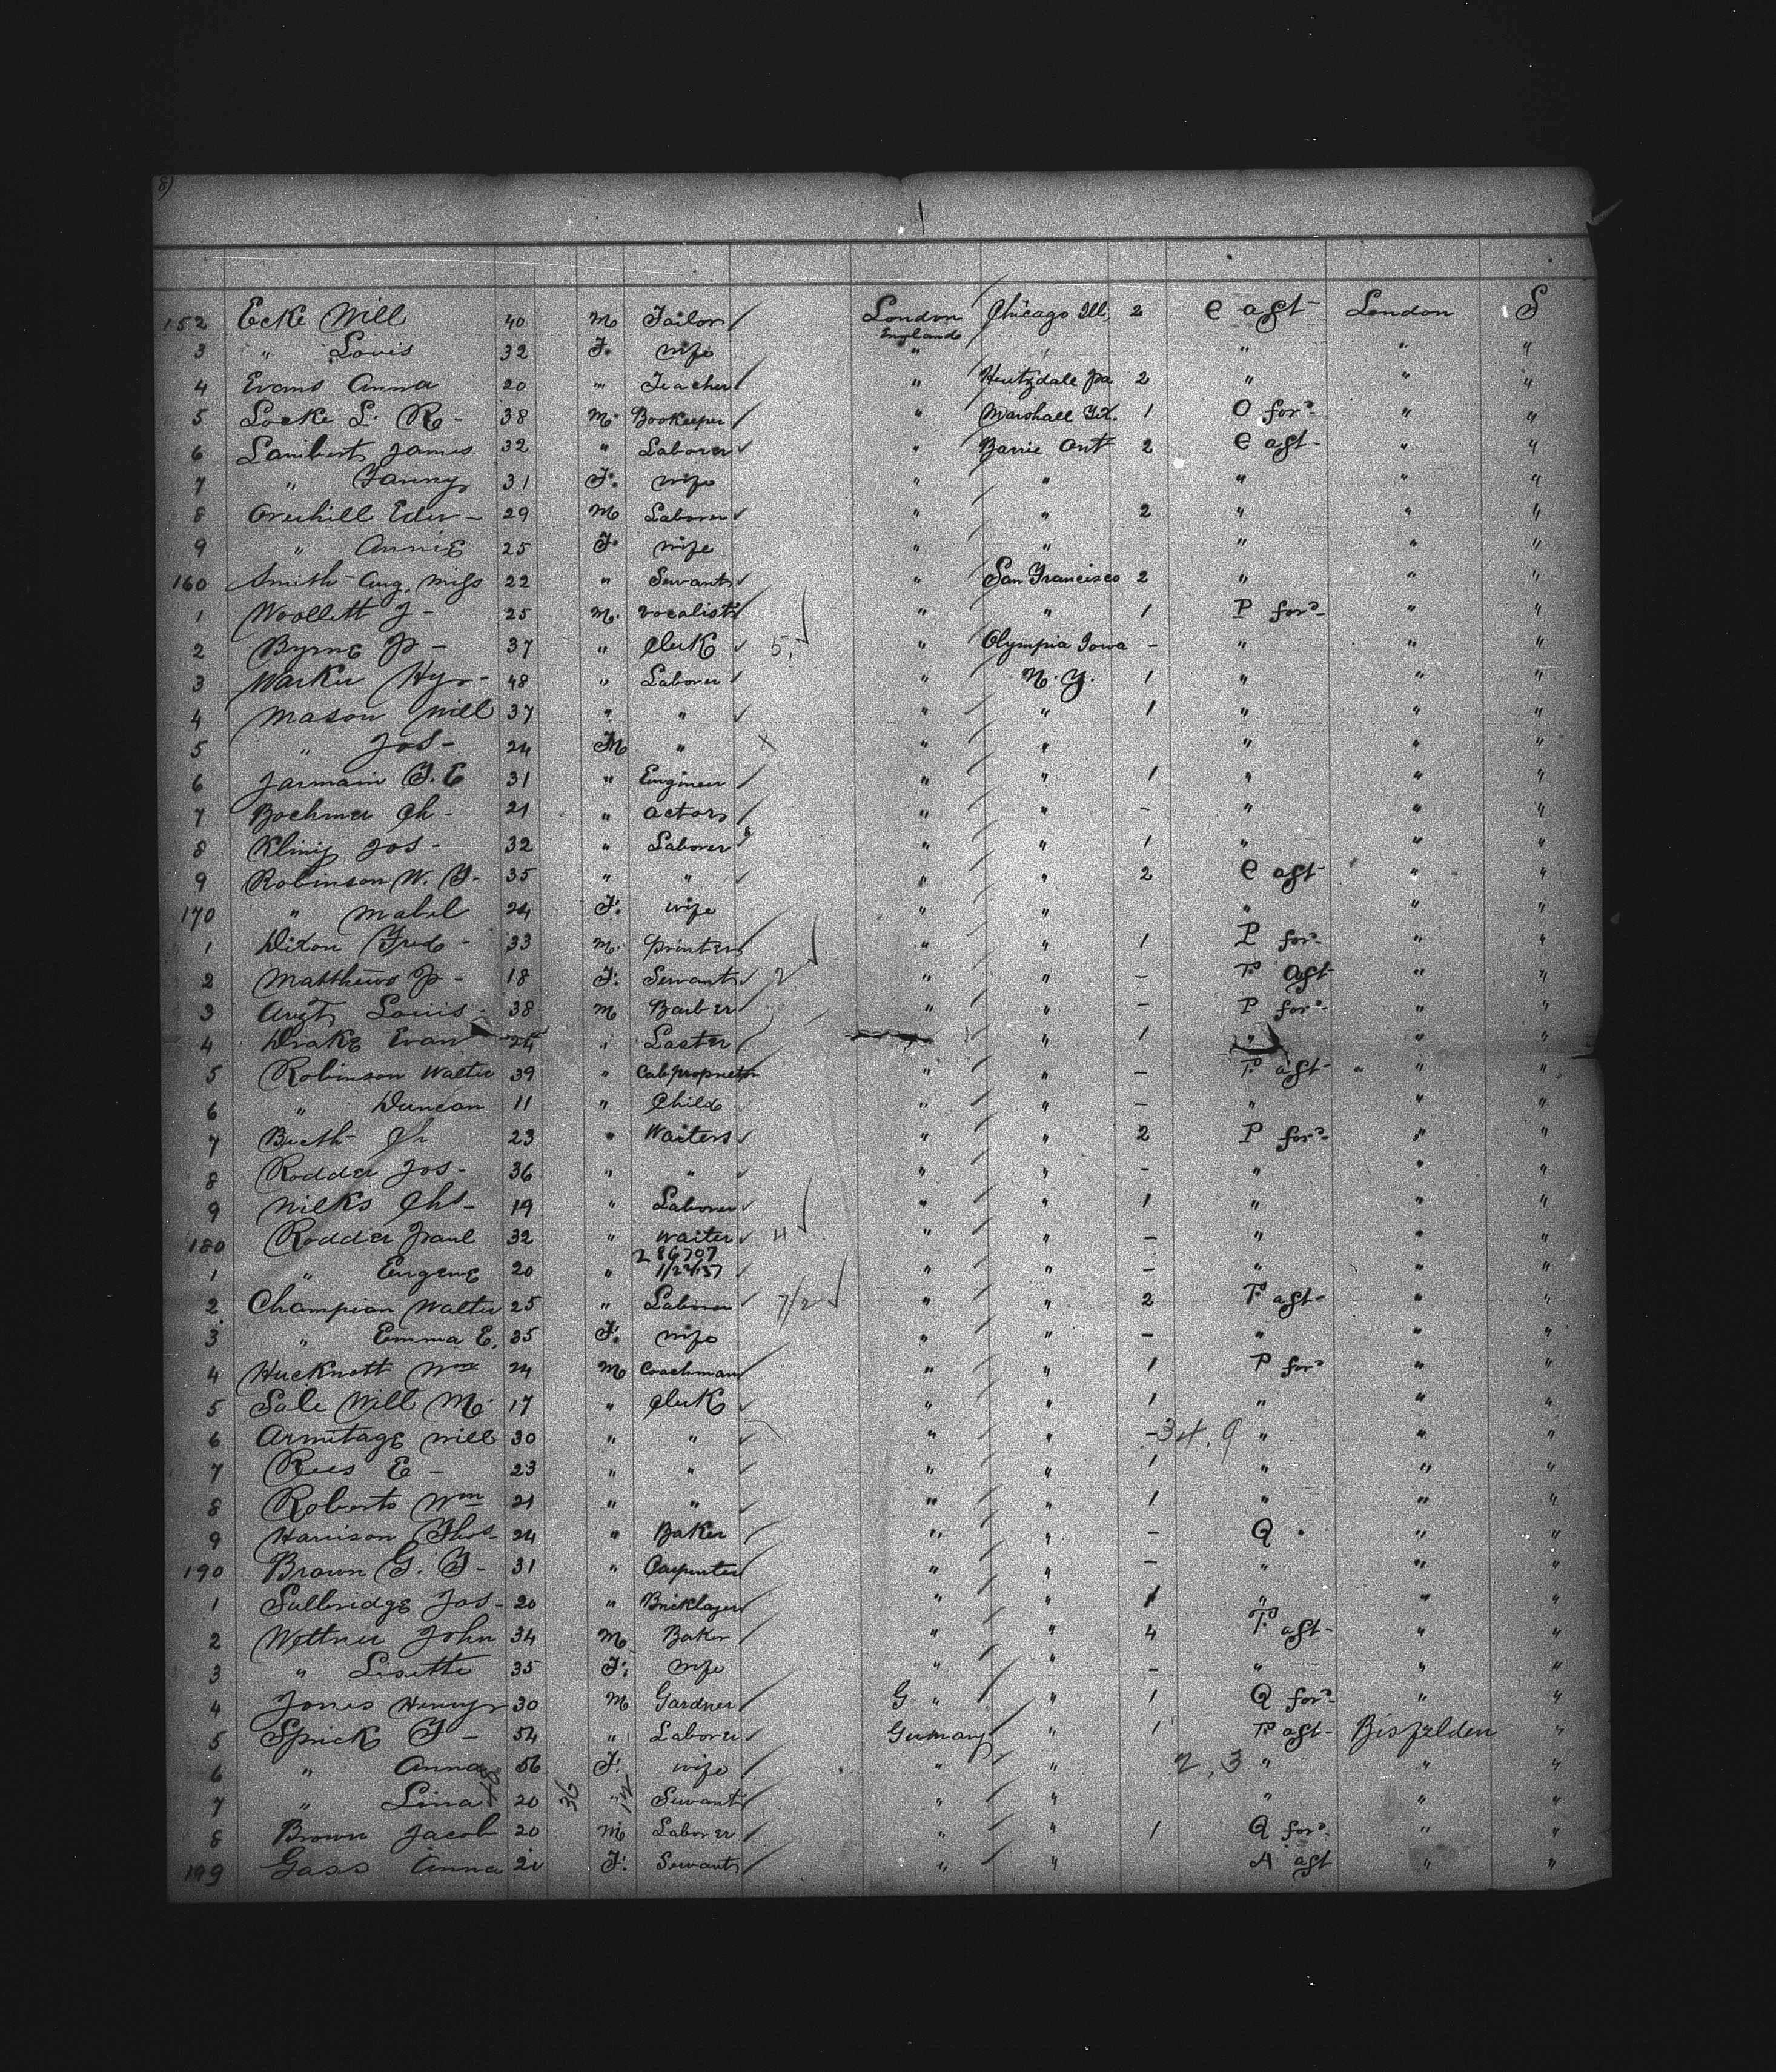 8)
152 Ecke Will 40 M Tailor London England Chicago Ill. 2 C aft London S
3 " Louis 32 F. wife " " " " "
4 Evans Anna 20 " Teacher " Houtzdale Pa 2 " " "
5 Locke L. R - 38 M. Bookeeper " Marshall Tex. 1 O ford " "
6 Lambert James 32 " Laborer " Barrie Ont 2 C aft " "
7 " Fanny 31 F. wife " " " " "
8 Overhill Edw - 29 M Laborer " " 2 " " "
9 " Annie 25 F. wife " " " " "
160 Smith Aug. Miss 22 " Servant " San Francisco 2 " " "
1 Woollett J - 25 M. vocalist " " 1 P ford " "
2 Byrne Jo - 37 " Clerk 5, " Olympia Iowa - " " "
3 Warker Hy - 48 " Laborer " N. Y. 1 " " "
4 Mason Will 37 " " " " 1 " " "
5 " Jos - 24 M " x " " " " "
6 Jarmain T. E 31 " Engineer " " 1 " " "
7 Boehmer Ch - 21 " actor " " - " " "
8 Kling Jos - 32 " Laborer " " 1 " " "
9 Robinson W. F. 35 " " " " 2 C aft " "
170 " Mabel 24 F. wife " " " " "
1 Dixon Fred - 33 M. printer " " 1 P ford " "
2 Matthews Jo - 18 F. Servant 2 " " - T aft " "
3 Louis - 38 M Barber " " - P ford " "
4 Drake Evan 24 " Laster " " 1 " " "
5 Robinson Walter 39 " Cab proprietor " " - T aft " "
6 " Duncan 11 " Child " " - " " "
7 Ch 23 " Waiters " " 2 P ford " "
8 Rodder Jos - 36 " " " " - " " "
9 Wilks Chs - 19 " Laborer " " 1 " " "
180 Rodder Paul 32 " Waiter 4 " " - " " "
1 " Eugene 20 " 2 86707 1/22/37 " " - " " "
2 Champion Walter 25 " Laborer 7/2 " " 2 T aft " "
3 " Emma E. 35 F. wife " " - " " "
4 Hucknott Wm 24 M Coachman " " 1 P ford " "
5 Sale Will M. 17 " Clerk " " 1 " " "
6 Armitage Will 30 " " " " - " " "
7 Rees E - 23 " " " " 1 " " "
8 Roberts Wm 21 " " " " 1 " " "
9 Harrison Thos - 24 " Baker " " - Q " " "
190 Brown G. F - 31 " Carpenter " " - " " "
1 Sulbridge Jos - 20 " Bricklayer " " 1 " " "
2 Wettner John 34 M Baker " " 4 T aft - " "
3 " Lisette 35 F. wife " " - " " "
4 Jones Henry 30 M Gardner G " " 1 Q ford " "
5 Sprick F - 54 " Laborer Germany " 1 T aft - "
6 " Anna 56 F. wife " " 2,3 " " "
7 " Lina 20 36 " Servant " " " " "
8 Brown Jacob 20 M Laborer " " 1 Q ford " "
199 Gass Anna 20 F. Servant " " A aft " "